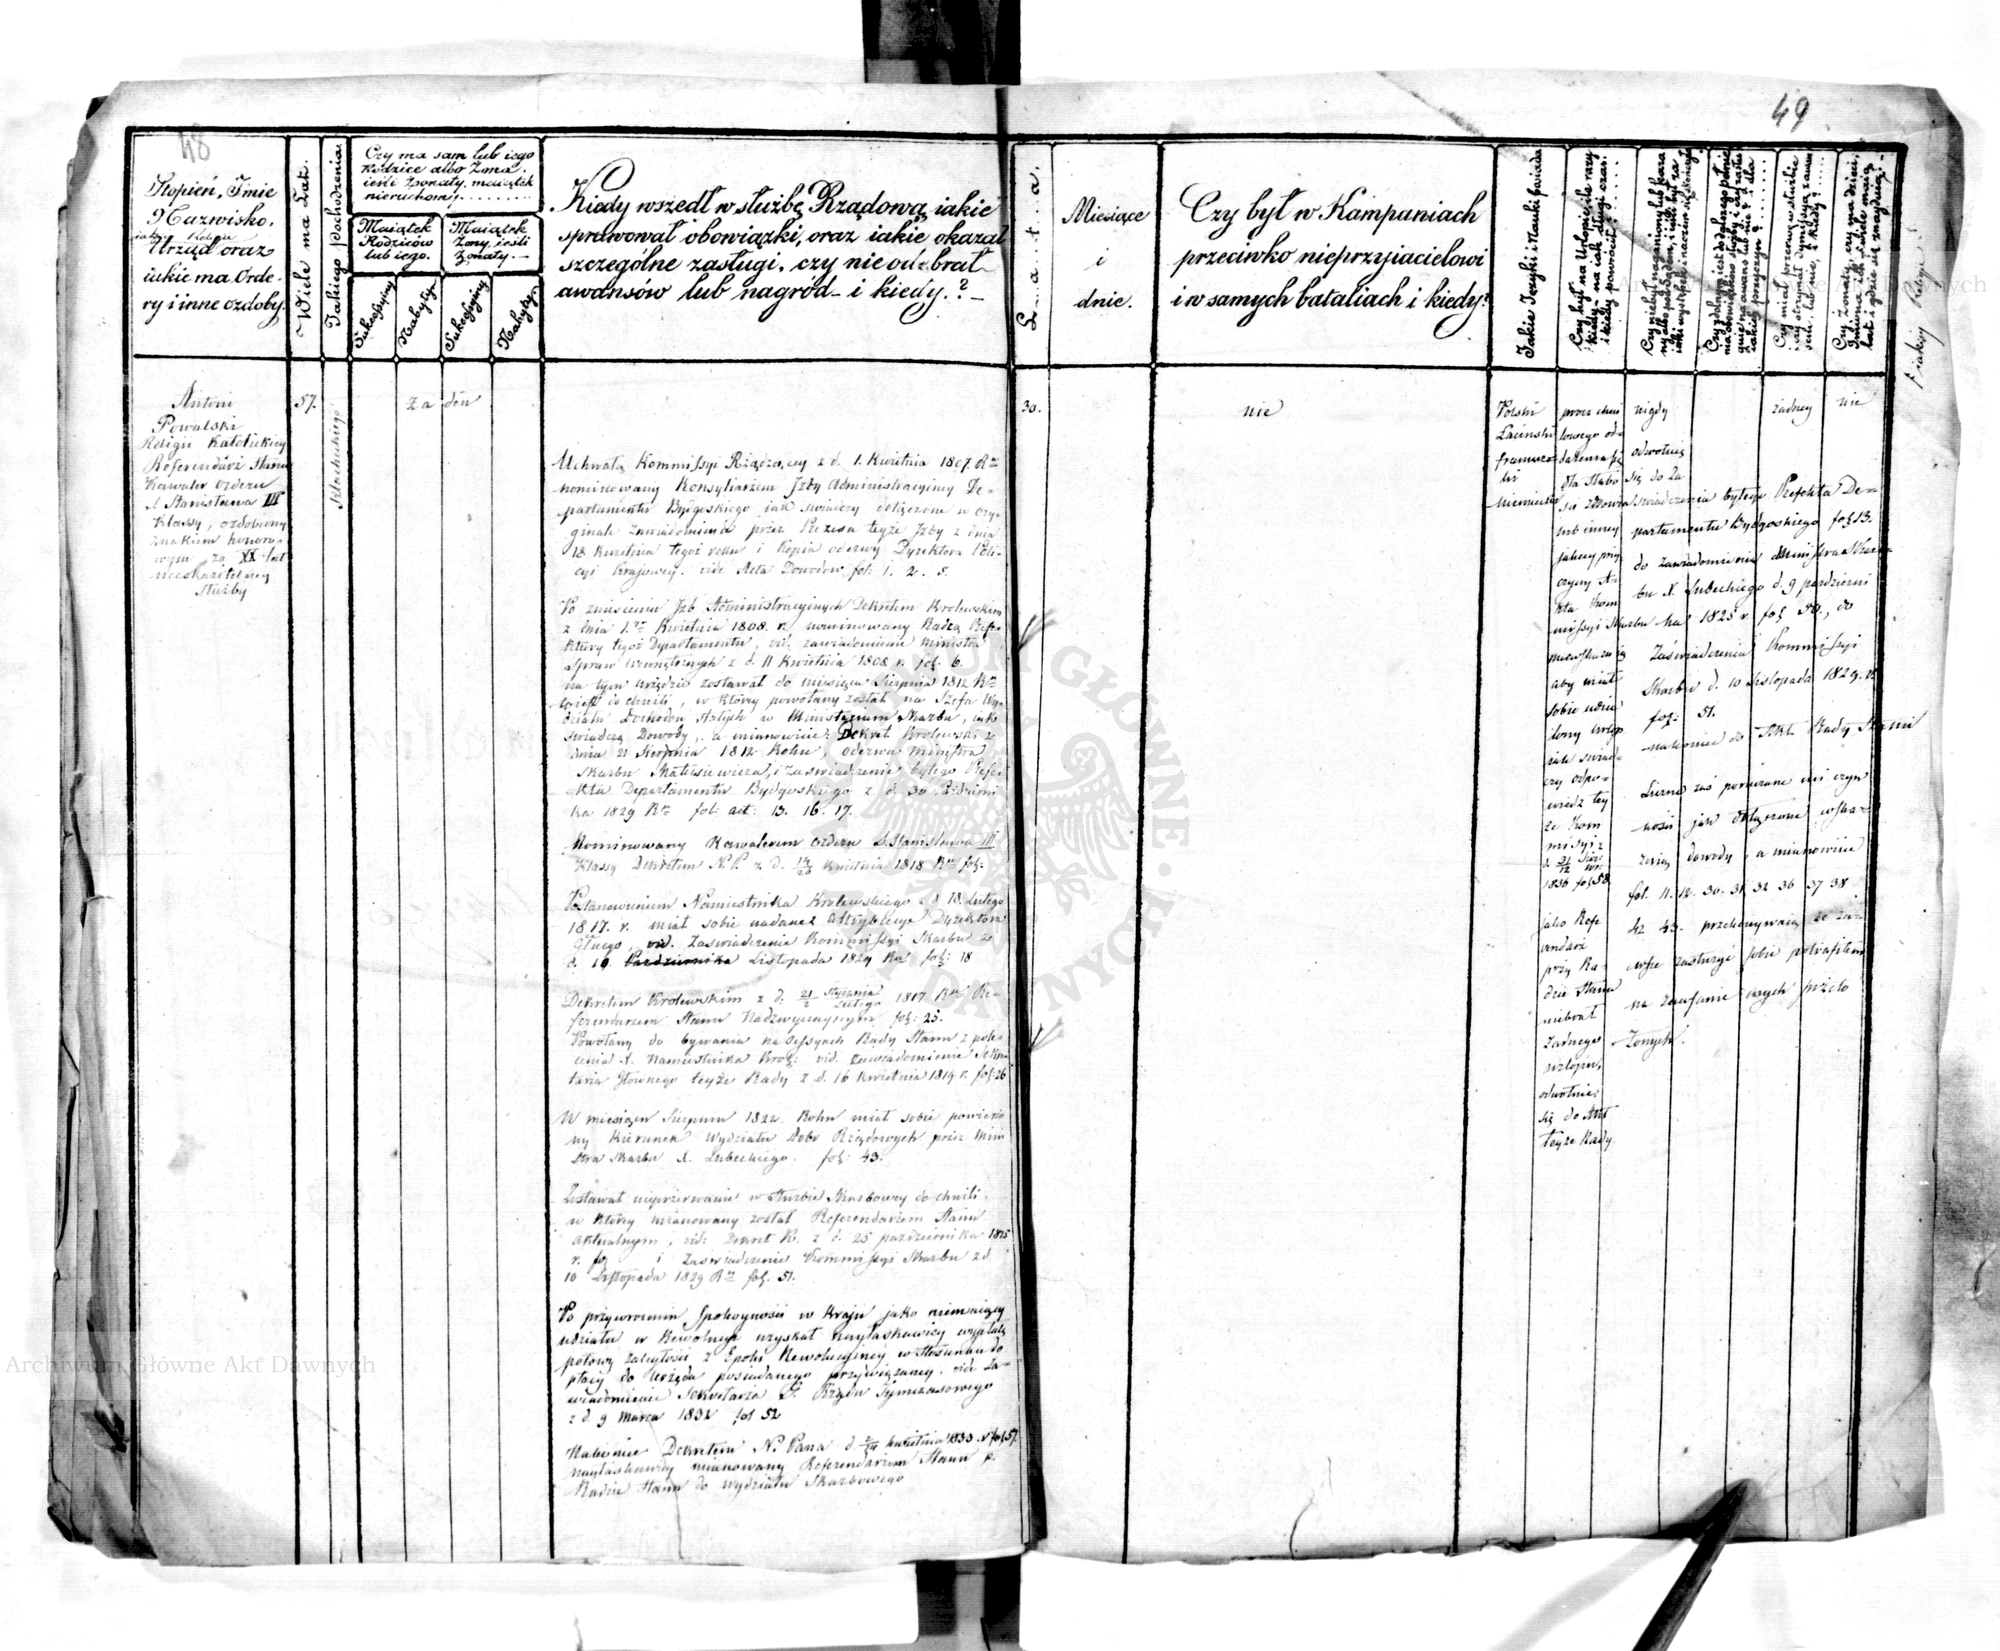 48
Stopień, Imie
Nazwisko,
iakiey Religii
Urząd oraz
iakie ma Orde-
ry i inne ozdoby.
Wiele ma Lat.
Jakiego Pochodzenia
Czy ma sam lub iego
Rodzice albo Żona,
ieśli Żonaty, maiątek
nieruchomy.
Maiątek
Rodziców
lub iego.
Maiątek
Żony, ieśli
Żonaty.
Sukcessyiny
Nabyty
Sukcessyiny
Nabyty
Kiedy wszedł w służbę Rządową, iakie
sprawował obowiązki, oraz iakie okazał
szczególne zasługi, czy nie odebrał
awansów lub nagród i kiedy?
Antoni
Powalski
Religii Katolickiey
Referendarz Stanu
Kawaler orderu
S. Stanisława III
Klassy, ozdobiony
znakiem honoro-
wym za XX lat
nieskazitelney
Służby
57.
Szlacheckiego
żaden
Uchwałą Kommissyi Rządzącey z d. 1. Kwietnia 1807 Ru
nominowany Konsyliarzem Izby Administracyiney De-
partamentu Bydgoskiego jak świadczy dołączone w ory-
ginale zawiadomienie przez Prezesa teyże Izby z dnia
18 Kwietnia tegoż roku i Kopia odezwy Dyrektora Poli-
cyi Krajowey. vide Acta Dowodów fol: 1. 2. 5.
Po zniesieniu Izb Administracyinych Dekretem Królewskim
z dnia 1. Kwietnia 1808. r. nominowany Radcą Prefe-
ktury tegoż Departamentu, vid. zawiadomienie Ministra
Spraw Wewnętrznych z d. 11 Kwietnia 1808 r. fol. 6.
na tym urzędzie zostawał do miesiąca Sierpnia 1812 Ru
do chwili, w którey powołany został na Szefa Wy-
działu Dochodów Stałych w Ministerium Skarbu, iak
świadczą Dowody, a mianowicie: Dekret Królewski z
dnia 21 Sierpnia 1812 Roku, odezwa Ministra
Skarbu Matusiewicza, i zaświadczenie byłego Prefe-
kta Departamentu Bydgoskiego z d. 30 Październi-
ka 1829 Ru fol: act: 13. 16. 17.
Nominowany Kawalerem orderu S. Stanisława III
Klassy Dekretem N. P. z d. Kwietnia 1818 Ru fol:
Postanowieniem Namiestnika Królewskiego z d. 18. Lutego
1817. r. miał sobie nadane Attrybucye Dyrektora
Głnego, vid. Zaświadczenie Kommissyi Skarbu z
d. 19. Października Listopada 1829 Ru fol: 18
Dekretem Królewskim z d. 21/2 Stycznia/Lutego 1817 Ru Re-
ferendarzem Stanu Nadzwyczaynym fol: 25.
Powołany do bywania na Sessyach Rady Stanu z pole-
cenia X. Namiestnika Król: vid. zawiadomienie Sekre-
tarza Głownego teyże Rady z d. 16 Kwietnia 1819 r. fol: 26
W miesiącu Sierpniu 1822. Roku miał sobie powierzo-
ny Kierunek Wydziału Dobr Rządowych przez Mini-
stra Skarbu X. Lubeckiego. fol: 43.
Zostawał nieprzerwanie w Służbie Skarbowey do chwili,
w którey mianowany został Referendarzem Stanu
aktualnym, vid: Dekret K. z d. 25 października 1825
r. fol i Zaświadczenie Kommissyi Skarbu z d
10 Listopada 1829 Ru fol. 51.
Po przywróceniu Spokoyności w Kraju jako niemaiący
udziału w Rewolucyi uzyskał naylaskawiey wypłatę
połowy zaległości z Epoki Rewolucyiney w stosunku do
płacy do urzędu posiadanego przywiązaney. vide Za-
wiadomienie Sekretarza J. Rządu Tymczasowego
z d. 9 Marca 1832 fol 52
Nakoniec Dekretem N. Pana d. 2/14 kwietnia 1833. r fol 57.
naylaskawiey mianowany Referendarzem Stanu p.
Radzie Stanu do Wydziału Skarbowego
49
Lata.
Miesiące
i
dnie.
Czy był w Kampaniach
przeciwko nieprzyiacielowi
i w samych bataliach i kiedy?
Jakie Języki i Nauki posiada
Czy był na Urlopie, ile razy
kiedy i na iak długi czas,
i kiedy powrócił?
30.
nie
Polski
Łaciński
francuz-
ki
niemiecki
procz chwi
lowego od-
dalenia się
dla słabo
ści zdrowia
lub inney
jakiey przy
czyny A-
kta Kom
missyi Skarbu
nieokazuią
aby miał
sobie udzie
lony urlop
jak świad-
czy odpo-
wiedz tey
że Kom
missyi z
1836 fol 58
jako Refe
rendarz
przy Ra-
dzie Stanu
niebrał
żadnego
urlopu,
odwołuie
się do Akt
teyże Rady.
nigdy
odwołuię
się do Za
świadczenia byłego Prefekta De-
partamentu Bydgoskiego fol 13.
do zawiadomienia Ministra Skar-
bu X. Lubeckiego d. 9 październi
ka 1825 r. fol 50., do
Zaświadczenia Kommissyi
Skarbu d. 10 Listopada 1829. r.
fol: 51.
nakoniec do Akt Rady Stanu
Liczne zaś powierzane mi czyn
ności jak dołączone wska-
zuią dowody, a mianowicie
fol. 11. 12. 30. 31 32 36 37 38
42 43. przekonywaią że za-
wsze zasłużyć sobie potrafiłem
na zaufanie moych przeło
żonych.
żadney
nie
Archiwum Główne Akt Dawnych
Archiwum Główne Akt Dawnych